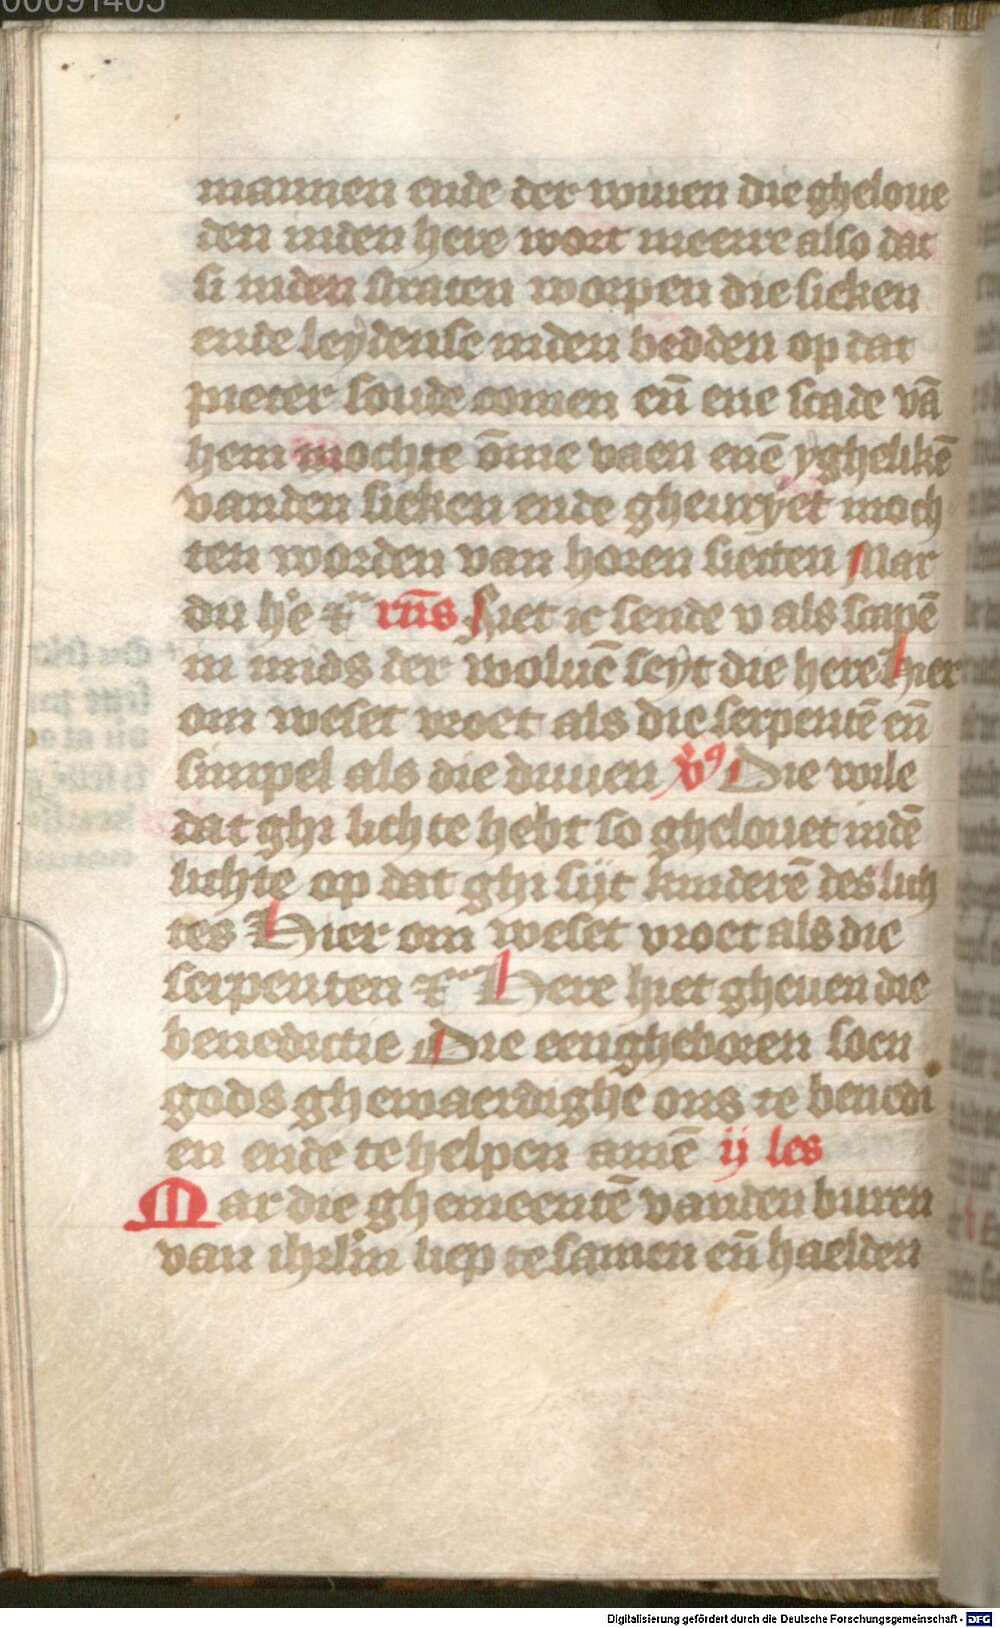 00091405
mannen ende der wiuen die gheloue
den inden here wort meerre also dat
si inden straten worpen die sieken
ende leydense inden bedden op dat
pieter soude comen eñ ene scade vā
hem mochte ōme vaen enē yghelikē
vanden sieken ende gheuryet moch
ten worden van horen siecten Mar
du h'e ⁊c rn̄s Siet ic sende v als scapē
in mids der woluē seyt die here Hier
om weset vroet als die serpentē eñ
simpel als die duuen v̓s Die wile
dat ghi lichte hebt so ghelouet indē
lichte op dat ghi sijt kinderē des lich
tes Hier om weset vroet als die
serpenten ⁊c Here hiet gheuen die
benedictie Die eengheboren soen
gods ghewaerdighe ons te benedi
en ende te helpen amē ij les
Mar die ghemeentē vanden buren
van ihrlm liep te samen eñ haelden
Digitalisierung gefördert durch die Deutsche Forschungsgemeinschaft - DFG